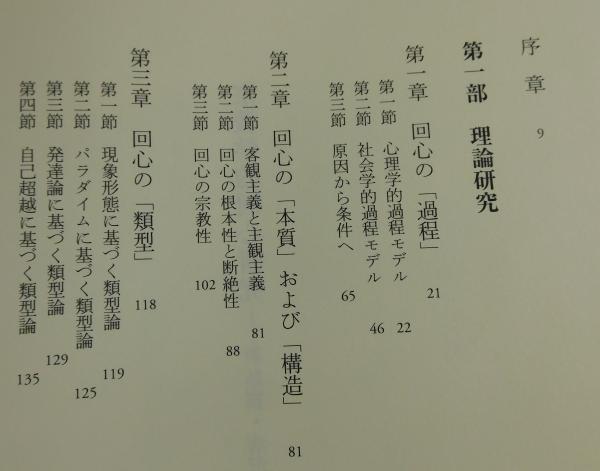 序章 9
第一部 理論研究
第一章 回心の「過程」 21
第一節 心理学的過程モデル 22
第二節 社会学的過程モデル 46
第三節 原因から条件へ 65
第二章 回心の「本質」および「構造」 81
第一節 客観主義と主観主義 81
第二節 回心の根本性と断絶性 88
第三節 回心の宗教性 102
第三章 回心の「類型」 118
第一節 現象形態に基づく類型論 119
第二節 パラダイムに基づく類型論 125
第三節 発達論に基づく類型論 129
第四節 自己超越に基づく類型論 135